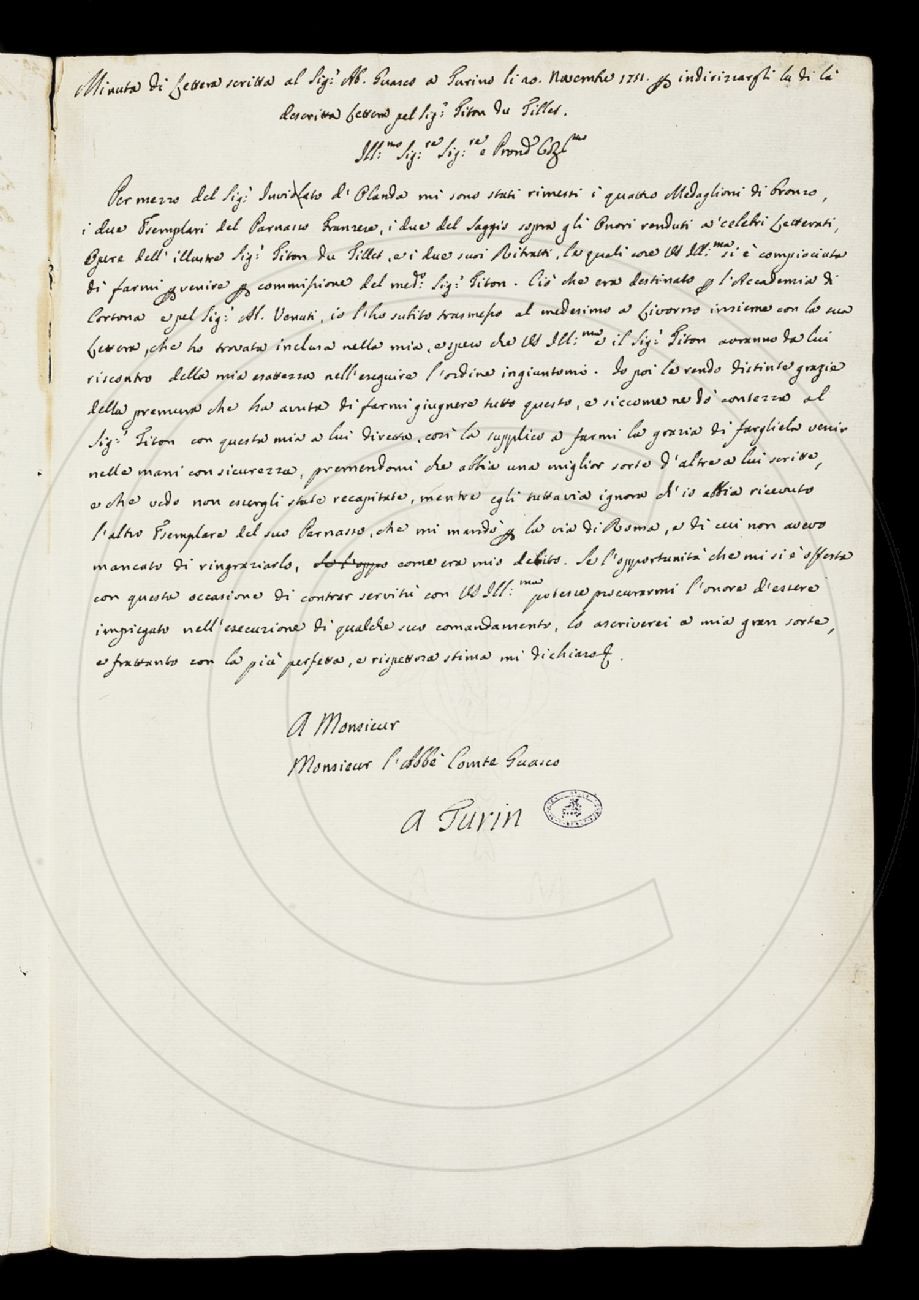 Minuta di Lettera scritta al Sig.r Ab. Guasco a Turino li 20. Novembre 1751. per indirizzargli la di là
descritta Lettera pel Sig.r Titon du Tillet.
Ill.mo Sig.re Sig.re e Pron
Per mezzo del Sig.r d'Olanda mi sono stati rimessi i quattro Medaglioni di bronzo,
i due Esemplari del Parnasso Franzese, i due del Saggio sopra gli Onori renduti a' celebri Letterati,
Opere dell'illustre Sig.r Titon du Tillet, e i due suoi Ritratti, le quali cose VS Ill.ma si è compiaciuta
di farmi pervenire per commissione del med.o Sig.r Titon. Ciò che era destinato per l'Accademia di
Cortona e pel Sig.r Ab. Venuti, io l'ho subito trasmesso al medesimo a Livorno insieme con la sua
Lettera, che ho trovata inclusa nella mia, e spero che VS Ill.ma e il Sig.r Titon avranno da lui
riscontro della mia esattezza nell'eseguire l'ordine ingiuntomi. Io poi le rendo distinte grazie
della premura che ha avuta di farmi giugnere tutto questo, e siccome ne dò contezza al
Sig.r Titon con questa mia a lui diretta, così la supplico a farmi la grazia di fargliela venir
nelle mani con sicurezza, premendomi che abbia una miglior sorte d'altre a lui scritte,
e che vedo non essergli state recapitate, mentre egli tuttavia ignora ch'io abbia ricevuto
l'altro Esemplare del suo Parnasso, che mi mandò per la via di Roma, e di cui non avevo
mancato di ringraziarlo, se l'oppo come era mio debito. Se l'opportunità che mi si è offerta
con questa occasione di contrar servitù con VS Ill.ma potesse procurarmi l'onore d'essere
impiegato nell'esecuzione di qualche suo comandamento, lo ascriverei a mia gran sorte,
e frattanto con la più perfetta, e rispettosa stima mi dichiaro &.
A Monsieur
Monsieur l'Abbé Comte Guasco
a Turin